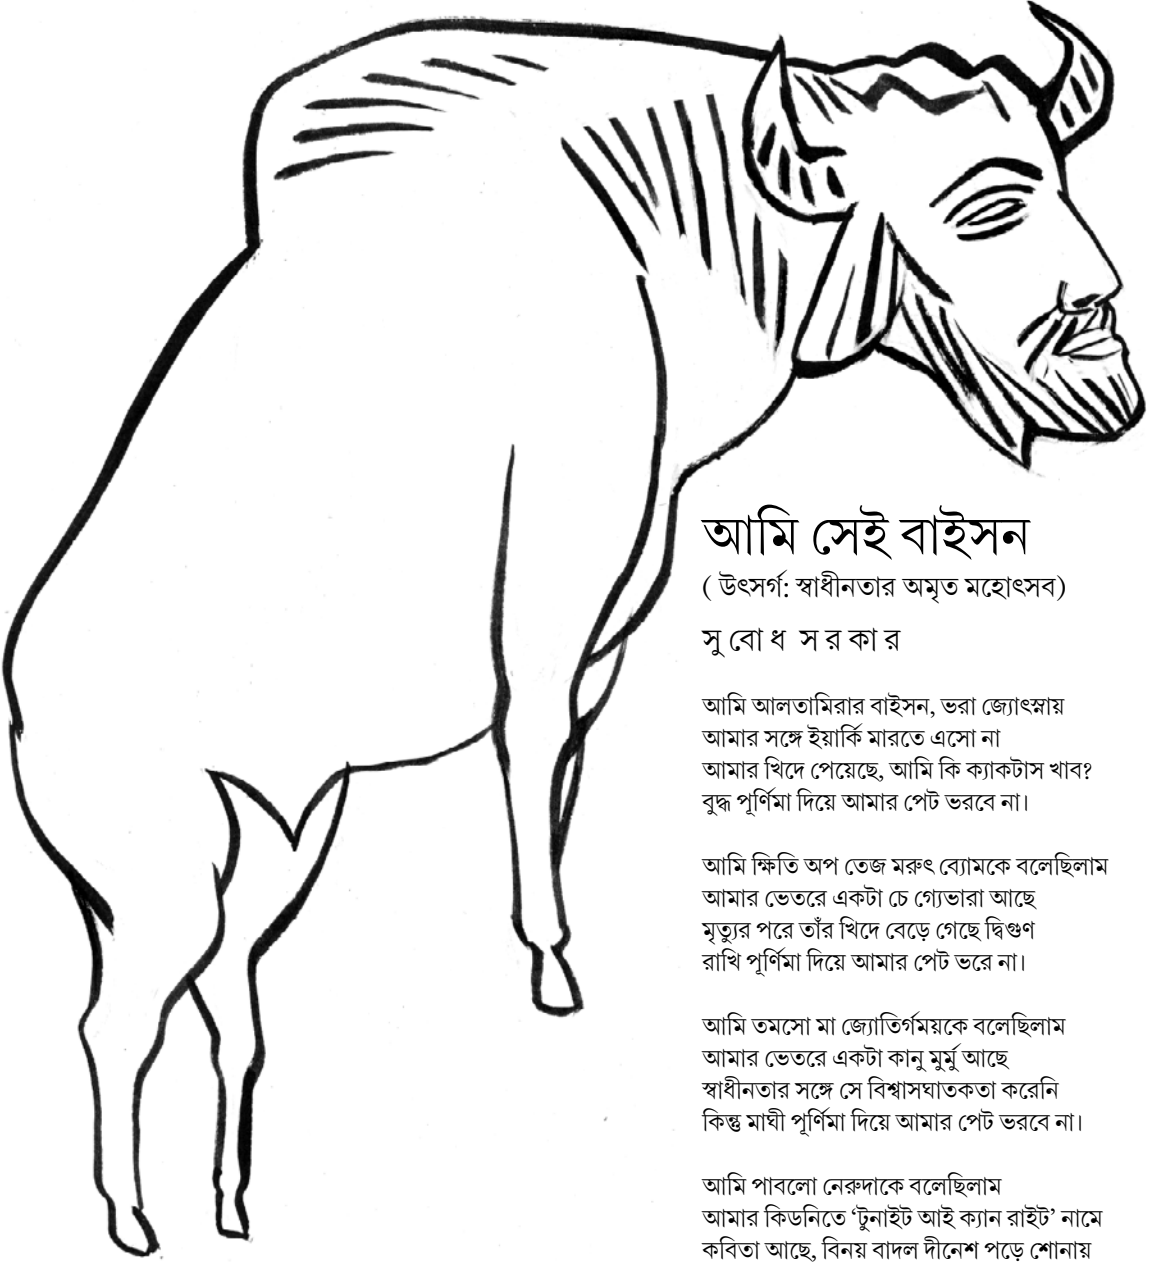 আমি সেই বাইসন
( উৎসর্গ: স্বাধীনতার অমৃত মহোৎসব)
সু বো ধ স র কা র
আমি আলতামিরার বাইসন, ভরা জ্যোৎস্নায়
আমার সঙ্গে ইয়ার্কি মারতে এসো না
আমার খিদে পেয়েছে, আমি কি ক্যাকটাস খাব?
বুদ্ধ পূর্ণিমা দিয়ে আমার পেট ভরবে না।
আমি ক্ষিতি অপ তেজ মরুৎ ব্যোমকে বলেছিলাম
আমার ভেতরে একটা চে গ্যেভারা আছে
মৃত্যুর পরে তাঁর খিদে বেড়ে গেছে দ্বিগুণ
রাখি পূর্ণিমা দিয়ে আমার পেট ভরে না।
আমি তমসো মা জ্যোতির্গময়কে বলেছিলাম
আমার ভেতরে একটা কানু মুর্মু আছে
স্বাধীনতার সঙ্গে সে বিশ্বাসঘাতকতা করেনি
কিন্তু মাঘী পূর্ণিমা দিয়ে আমার পেট ভরবে না।
আমি পাবলো নেরুদাকে বলেছিলাম
আমার কিডনিতে ‘টুনাইট আই ক্যান রাইট’ নামে
কবিতা আছে, বিনয় বাদল দীনেশ পড়ে শোনায়